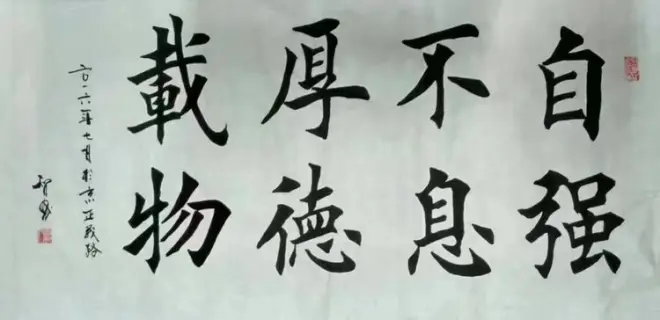 自强
不息
厚德
載物
二〇一六年七月於京正义路